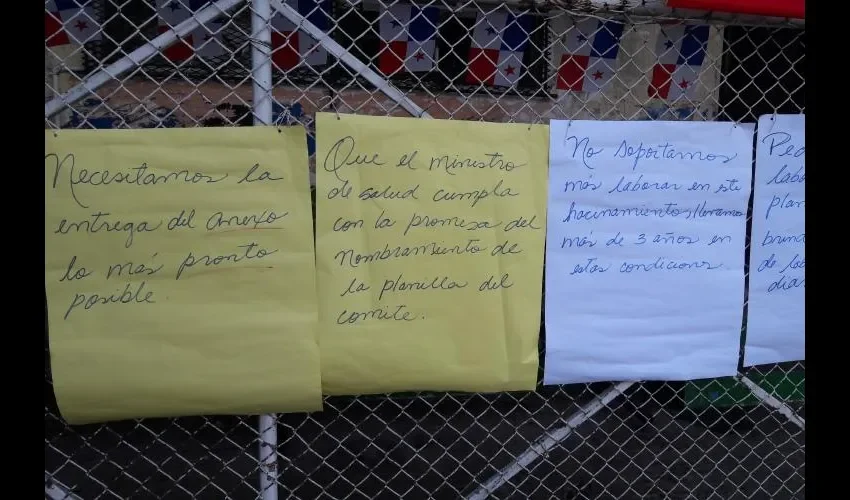 Necesitamos la
entrega del anexo
lo más pronto
posible.
Que el ministro
de salud cumpla
con la promesa del
nombramiento de
la planilla del
comite.
No soportamos
más laborar en este
hacinamiento, llevamos
más de 3 años en
estas condiciones.